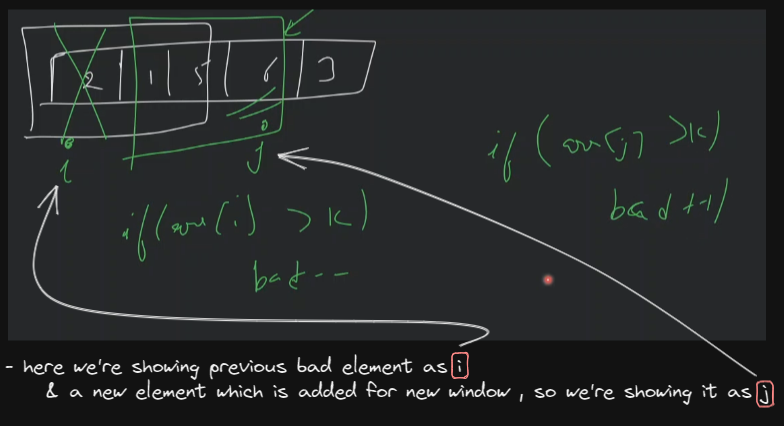 2 1 5 6 3
i j
if (arr[j] > k)
bad ++
if (arr[i] > k)
bad --
- here we're showing previous bad element as i
& a new element which is added for new window, so we're showing it as j